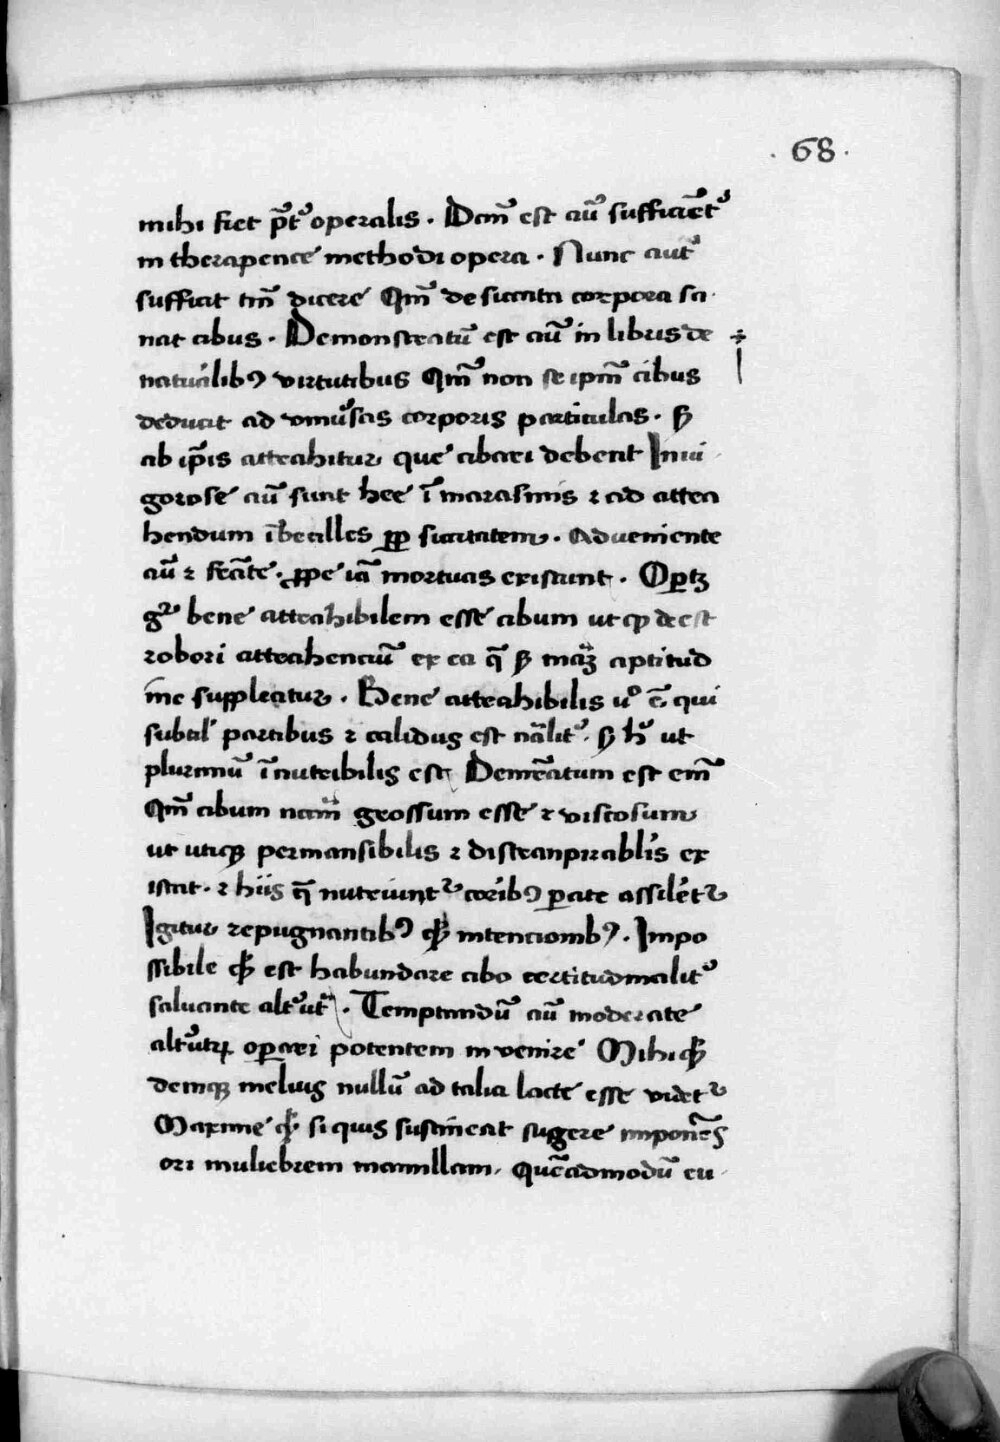 . 68 .
mihi fiet p̃t᷒ operalis . Dcm̃ est aũ sufficiẽt᷒
in therapence methodi opera . Nunc aut᷒
sufficiat tm̃ dicere Qm̃ de siccata corpora sa
nat cibus . Demonstratũ est aũ in libris de
natural̓ib⁹ virtutibus Qm̃ non se ipm̃ cibus
deducit ad vniu᷒sas corporis particulas . Sꝫ
ab ip̃is attrahitur que cibari debent Inui
gorose aũ sunt hee ĩ marasmis ⁊ ad attra
hendum ĩbecilles ꝓp siccitatem . Adueniente
aũ ⁊ fc̃ate . ꝓpe iã mortuas existunt . Oꝑtꝫ
g᷒ bene attrahibilem esse cibum ut ꝙ deest
robori attrahenciũ ex ea q̃ sꝫ mãꝫ aptitud
ine suppleatur . Bene attrahibilis u᷒o ẽ qui
subtil̓ partibus ⁊ calidus est nãlit᷒ . Sꝫ h᷒ ut
plurimũ ĩnutribilis est Demr̃atum est em̃
Qm̃ cibum nam̃ grossum esse ⁊ viscosum
ut utiqꝫ permansibilis ⁊ distranpirabl̓is ex
istat . ⁊ hiis q̃ nutriunt᷒ corib⁹ ꝑate assil̓et᷒
Igitur repugnantib⁹ qꝫ intencionib⁹ . Impo
ssibile qꝫ est habundare cibo certitudinalit᷒
saluante alt᷒ut᷒ . Temptandũ aũ moderate
alt᷒utꝝ oꝑari potentem inuenire Mihi qꝫ
deniqꝫ melius nullũ ad talia lacte esse videt᷒
Maxime qꝫ si quis sustineat sugere imponẽs
ori muliebrem mamillam . Quẽadmodũ eu